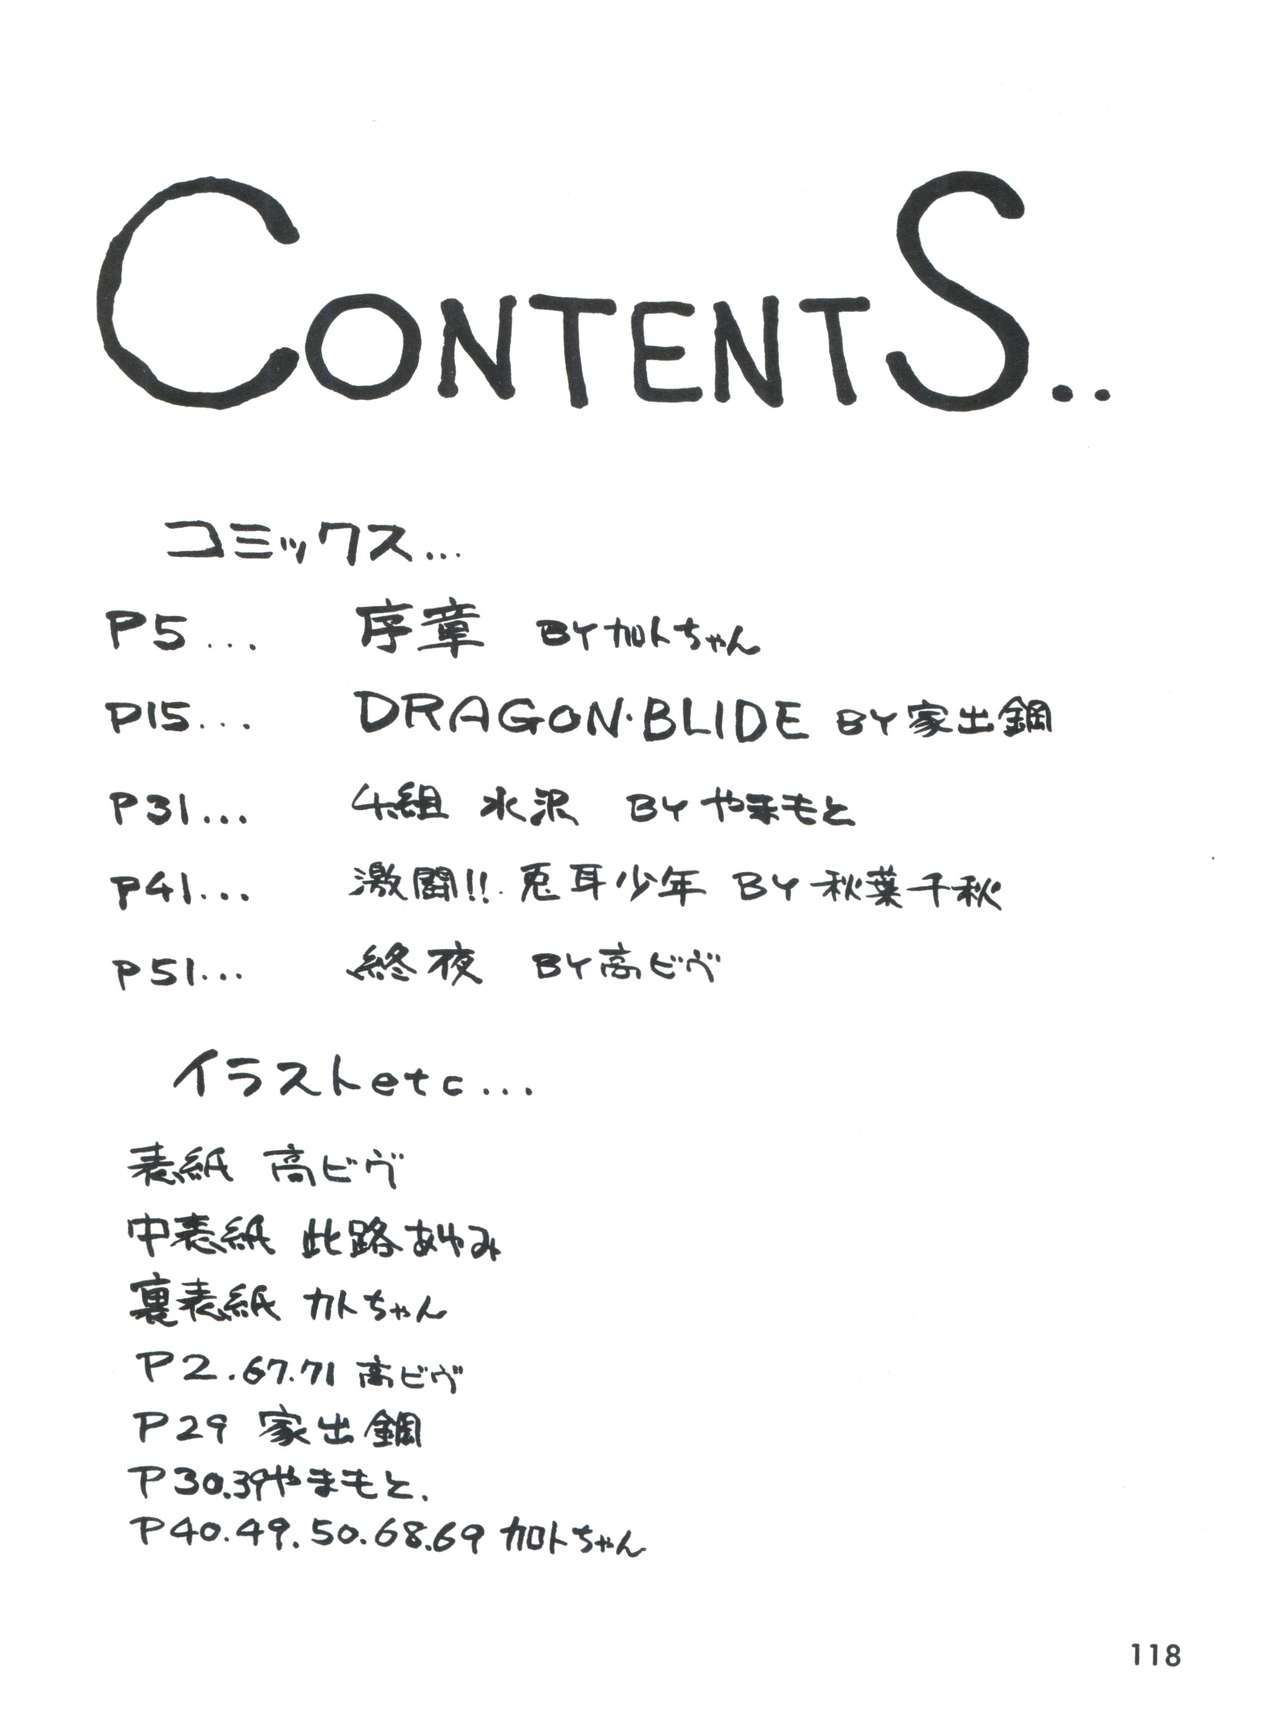 CONTENTS..
コミックス...
P5... 序章 BY加トちゃん
P15... DRAGON・BLIDE BY家出鋼
P31... 4組 水沢 BYやまもと
P41... 激闘!!兎耳少年 BY秋葉千秋
P51... 終夜 BY高ビヴ
イラストetc...
表紙 高ビヴ
中表紙 此路あゆみ
裏表紙 カトちゃん
P2.67.71 高ビヴ
P29 家出鋼
P30.39やまもと.
P40.49.50.68.69 加トちゃん
118